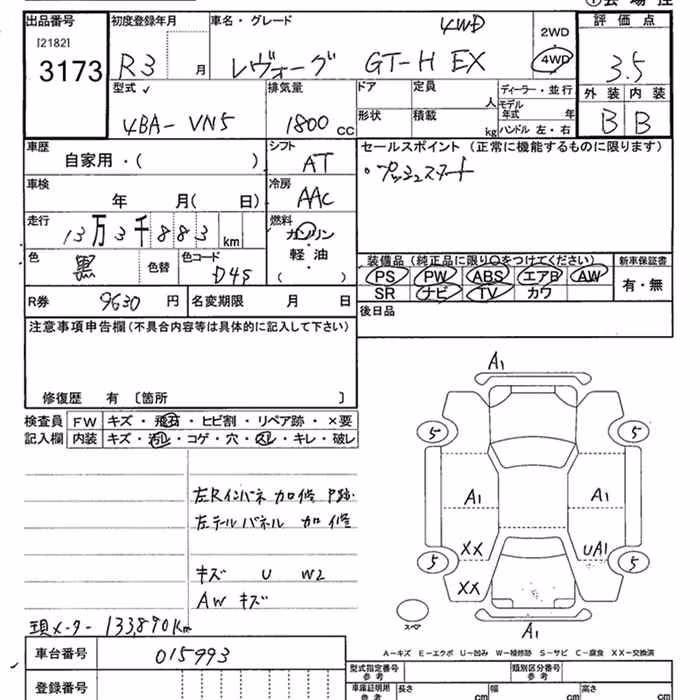 出品番号 初度登録年月 車名・グレード 評価点
[2182]
3173
R3 月 レヴォーグ GT-H EX 4WD
2WD
4WD
3.5
外装 内装
B B
型式 排気量 ドア 定員 人 ディーラー・並行
4BA-VN5 1800 cc 形状 積載 kg モデル年式 年
ハンドル 左・右
車歴 自家用・( ) シフト AT
セールスポイント(正常に機能するものに限ります)
・プッシュスタート
車検 年 月( 日) 冷房 AAC
走行 13万3千883 km 燃料 ガソリン・軽油・( )
色 黒 色替 色コード D4S
装備品(純正品に限り○をつけてください) 新車保証書
PS PW ABS エアB AW 有・無
SR ナビ TV カワ
R券 9630 円 名変期限 月 日
後日品
注意事項申告欄(不具合内容等は具体的に記入して下さい)
修復歴 有 〔箇所 〕
検査員記入欄 FW キズ・飛石・ヒビ割・リペア跡・×要
内装 キズ・汚レ・コゲ・穴・スレ・キレ・破レ
左Rインパネ 加修 P跡.
左テールパネル 加修
キズ U W2
AW キズ
現メーター 133,890Km
A1
5 5
A1 A1
XX UA1
5 5
XX
スペア
A1
A-キズ E-エクボ U-凹み W-補修跡 S-サビ C-腐食 XX-交換済
車台番号 015993
登録番号
型式指定番号 参考 類別区分番号 参考
車庫証明用 参考 長さ cm 幅 cm 高さ cm